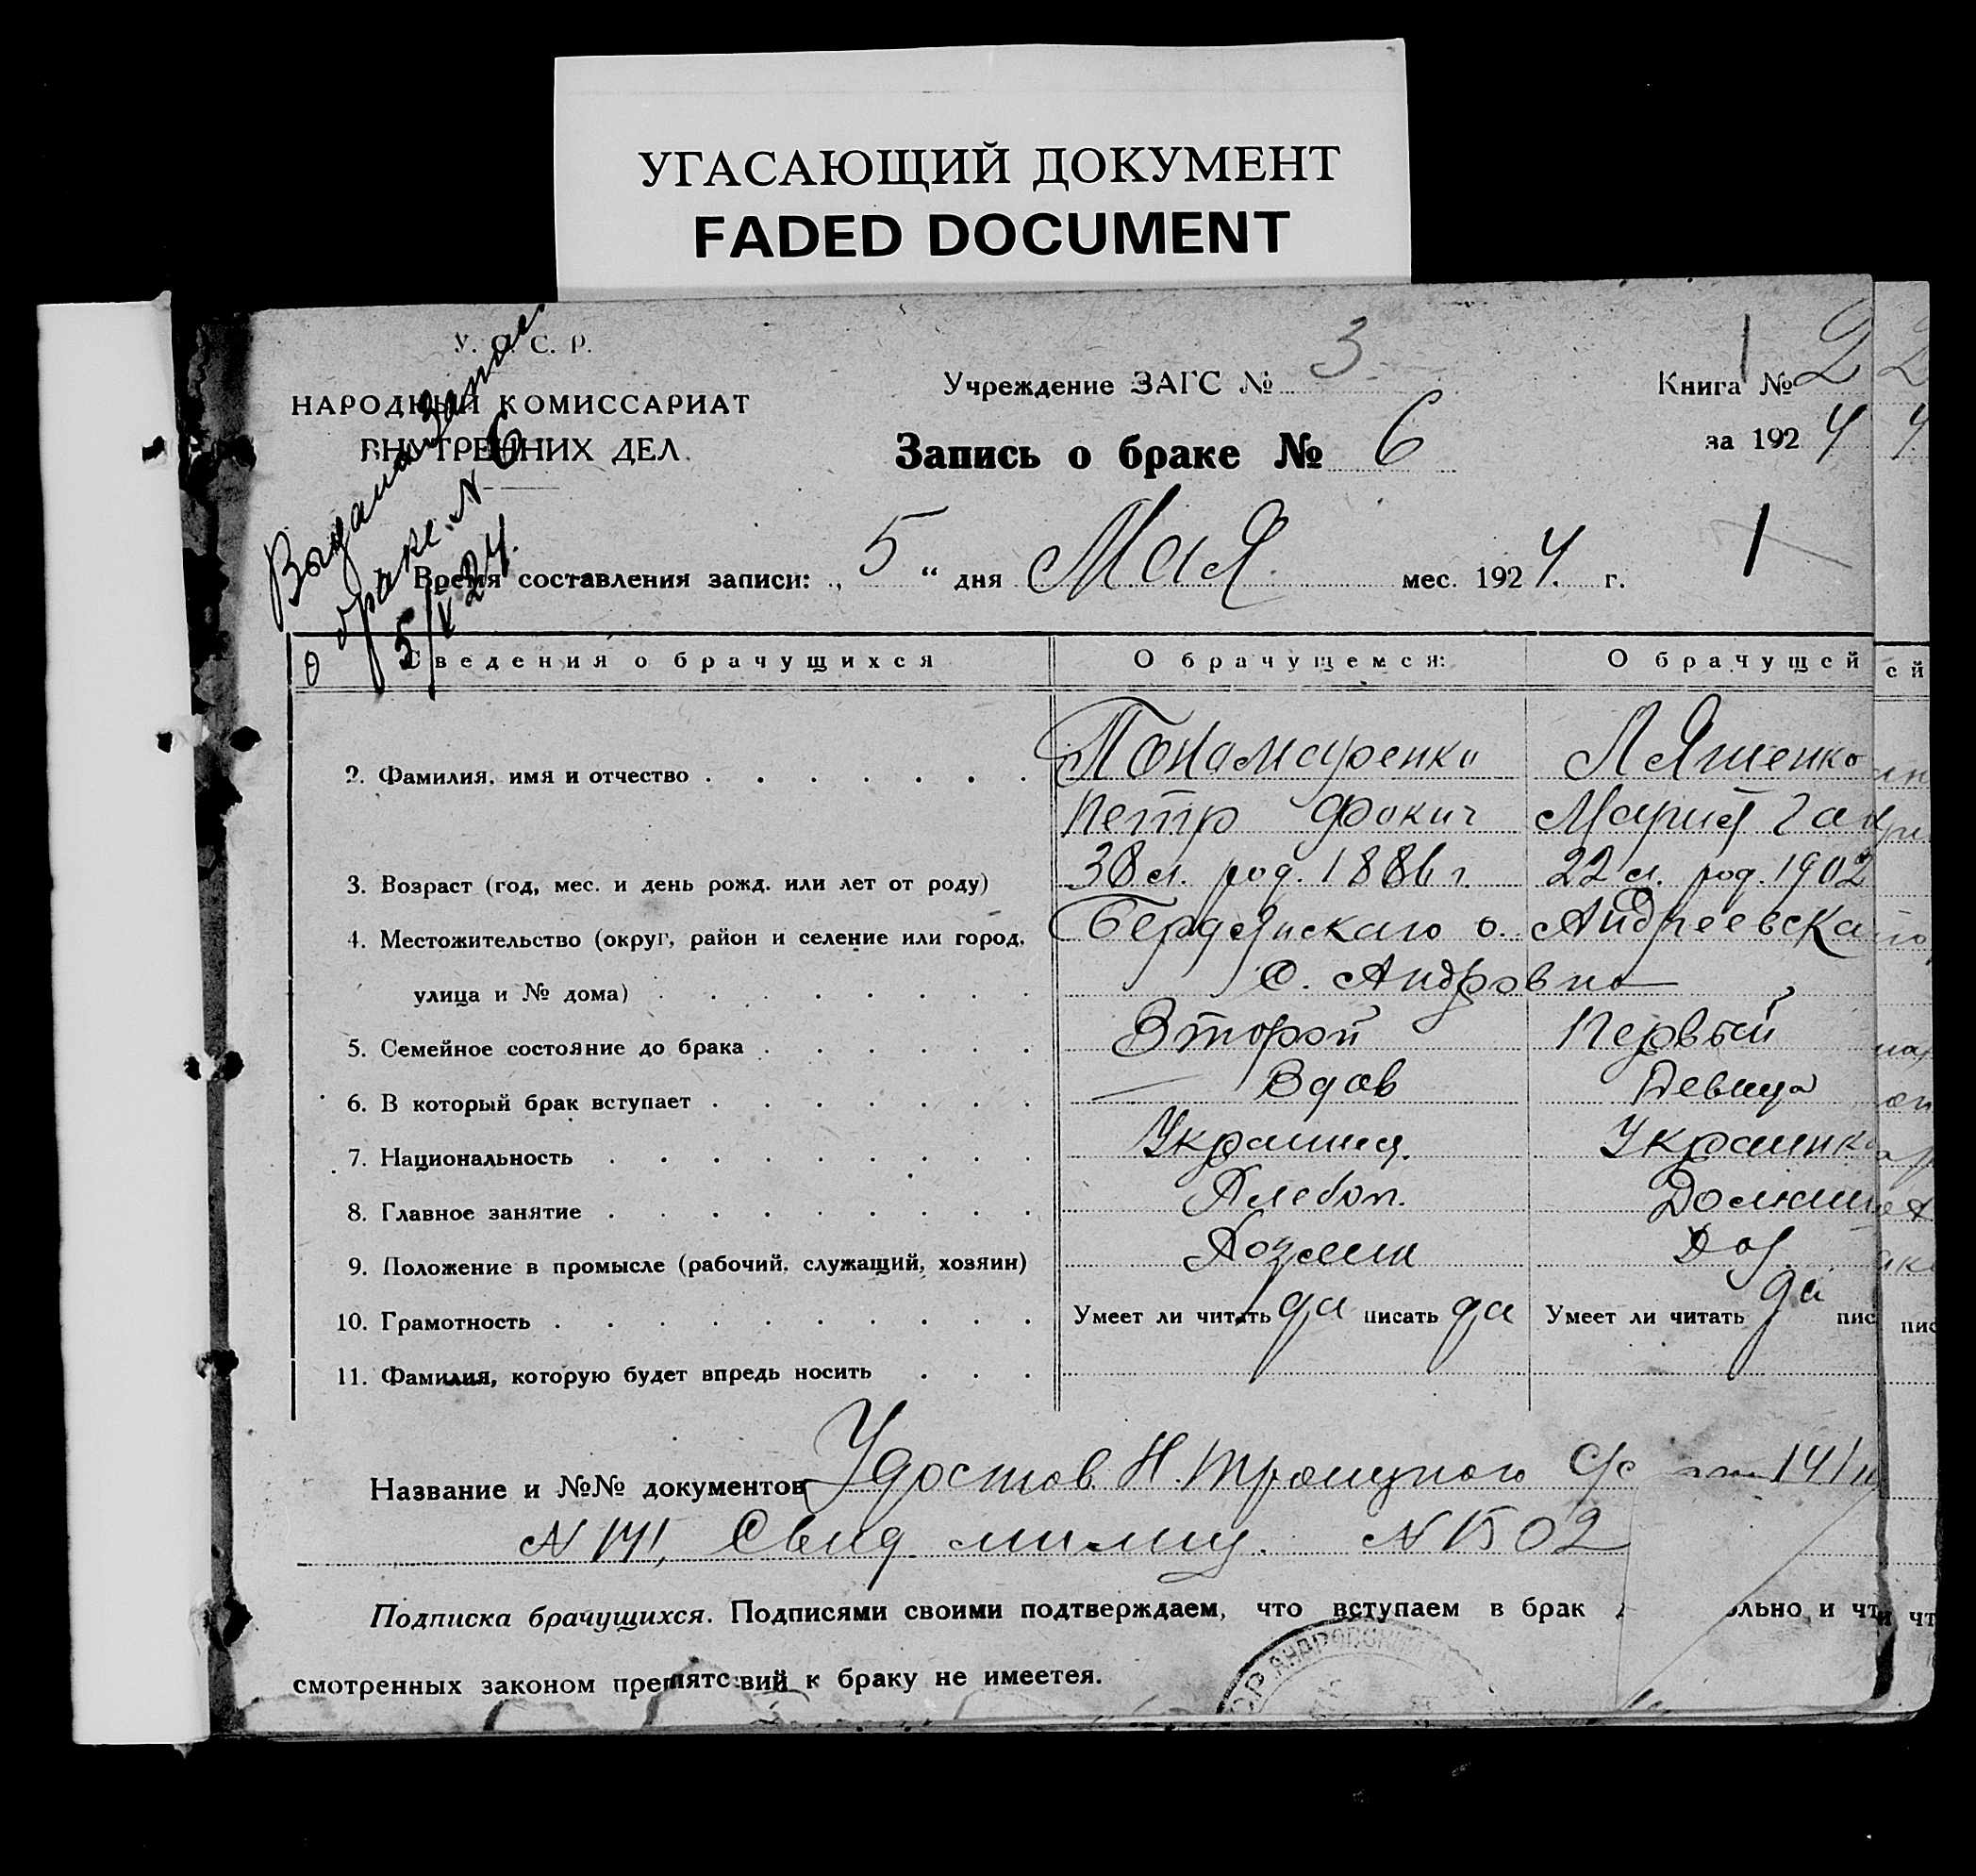 УГАСАЮЩИЙ ДОКУМЕНТ
FADED DOCUMENT
У. С. С. Р.
НАРОДНЫЙ КОМИССАРИАТ
ВНУТРЕННИХ ДЕЛ.
Выдана запис
о браке. N 6
5/V 24.
Учреждение ЗАГС № 3
Книга № 2
за 1924
Запись о браке № 6
1
Время составления записи: „5“ дня Мая мес. 1924. г.
Сведения о брачущихся О брачущемся: О брачущей
2. Фамилия, имя и отчество Понамаренко Ляшенко
Петр Фокич Мария Гав
3. Возраст (год, мес. и день рожд. или лет от роду) 38 л. род. 1886 г. 22 л. род. 1902
4. Местожительство (округ, район и селение или город, Бердянскаго о. Андреевска
улица и № дома) С. Андровка
5. Семейное состояние до брака Второй Первый
6. В который брак вступает Вдов Девица
7. Национальность Украинц. Украинка
8. Главное занятие Хлебоп. Домаш
9. Положение в промысле (рабочий, служащий, хозяин) Хозяин
10. Грамотность Умеет ли читать да писать да Умеет ли читать да пис
11. Фамилия, которую будет впредь носить
Название и №№ документов Удостов. Н. Троицкого С/с 141
N 141, Свид милиц. N 1502
Подписка брачущихся. Подписями своими подтверждаем, что вступаем в брак ольно и чт
смотренных законом препятствий к браку не имеется.